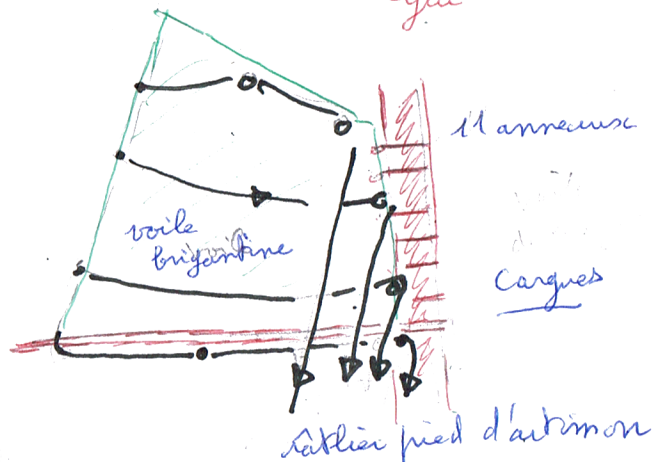 11 anneaux
voile
brigantine
Cargues
râtlier pied d'artimon